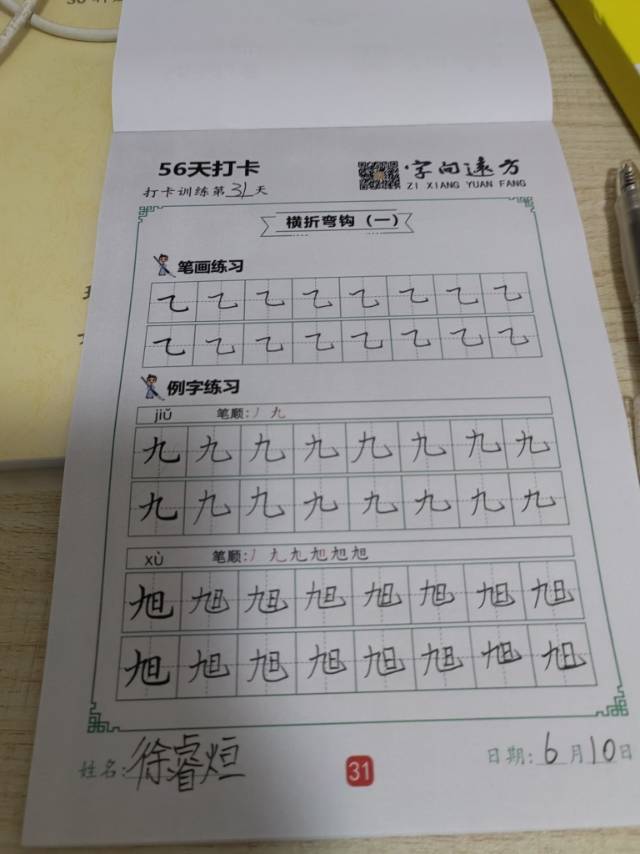 56天打卡
字向远方
打卡训练第31天
ZI XIANG YUAN FANG
横折弯钩（一）
笔画练习
乙乙乙乙乙乙乙乙
乙乙乙乙乙乙乙乙
例字练习
jiǔ 笔顺:丿九
九九九九九九九九
九九九九九九九九
xù 笔顺:丿九九旭旭旭
旭旭旭旭旭旭旭旭
旭旭旭旭旭旭旭旭
姓名:徐睿烜
31
日期:6月10日